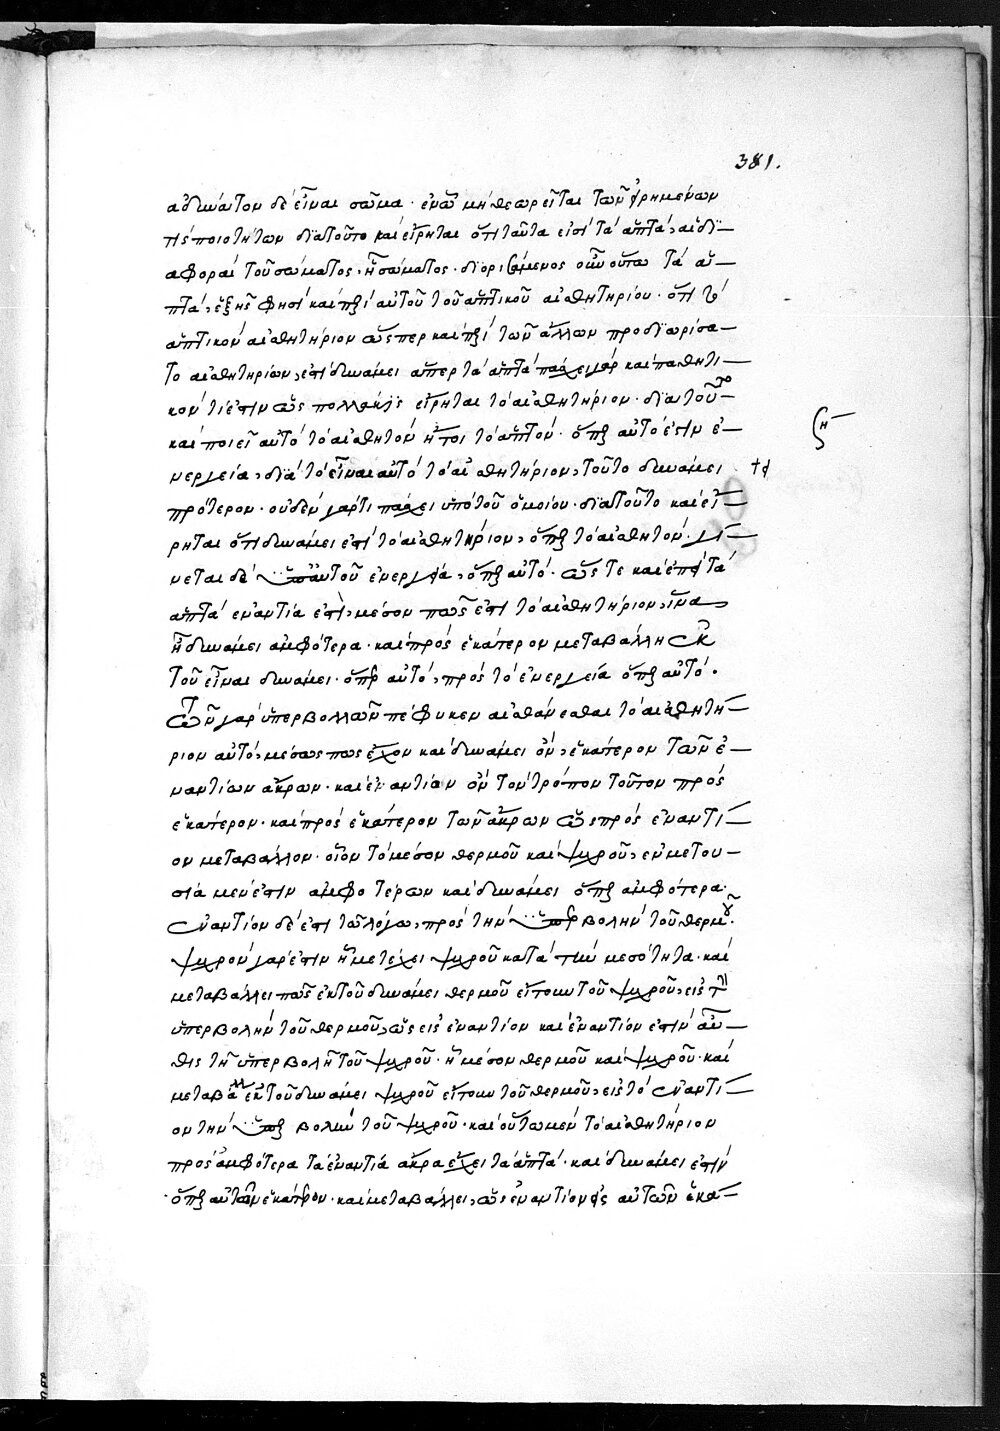 381.
ἀδύνατον δὲ εἶναι σῶμα· ἐν ᾧ μὴ θεωρεῖται τῶν εἰρημένων
τις ποιοτήτων διατοῦτο καὶ εἴρηται ὅτι ταῦτα εἰσὶ τὰ ἁπτά, αἱ δι-
αφοραὶ τοῦ σώματος, ᾗ σώματος· διορισάμενος οὖν οὕτω τὰ ἁ-
πτά, ἑξῆς φησὶ καὶ περὶ αὐτοῦ τοῦ ἁπτικοῦ αἰσθητηρίου· ὅτι τὸ
ἁπτικὸν αἰσθητήριον ὥσπερ καὶ περὶ τῶν ἄλλων προδιωρίσα-
το αἰσθητηρίων, ἐστὶ δυνάμει ἅπερ τὰ ἁπτὰ πάσχει γὰρ καὶ παθητι-
κόν τί ἐστιν ὡς πολλάκις εἴρηται τὸ αἰσθητήριον· διατοῦτο
καὶ ποιεῖ αὐτὸ τὸ αἰσθητὸν ἤτοι τὸ ἁπτόν· ὅπερ αὐτό ἐστιν ἐ-
νεργείᾳ, διὰ τὸ εἶναι αὐτὸ τὸ αἰσθητήριον, τοῦτο δυνάμει
πρότερον· οὐδὲν γάρ τι πάσχει ὑπὸ τοῦ ὁμοίου· διατοῦτο καὶ εἴ-
ρηται ὅτι δυνάμει ἐστὶ τὸ αἰσθητήριον, ὅπερ τὸ αἰσθητόν· γί-
νεται δὲ ὑπ' αὐτοῦ ἐνεργείᾳ, ὅπερ αὐτό· ὥστε καὶ ἐπεὶ τὰ
ἁπτὰ ἐναντία ἐστὶ, μέσον πως ἐστὶ τὸ αἰσθητήριον, ἵνα
ᾖ δυνάμει ἀμφότερα· καὶ πρὸς ἑκάτερον μεταβάλλῃ ἐκ
τοῦ εἶναι δυνάμει· ὅπερ αὐτό, πρὸς τὸ ἐνεργείᾳ ὅπερ αὐτό·
Τῶν γὰρ ὑπερβολῶν πέφυκεν αἰσθάνεσθαι τὸ αἰσθητή-
ριον αὐτὸ, μέσως πως ἔχον καὶ δυνάμει ὂν, ἑκάτερον τῶν ἐ-
ναντίων ἄκρων· καὶ ἐναντίον ὂν τὸν τρόπον τοῦτον πρὸς
ἑκάτερον· καὶ πρὸς ἑκάτερον τῶν ἄκρων ὡς πρὸς ἐναντί-
ον μεταβάλλον· οἷον τὸ μέσον θερμοῦ καὶ ψυχροῦ, ἐν μετου-
σίᾳ μέν ἐστιν ἀμφοτέρων καὶ δυνάμει ὅπερ ἀμφότερα·
ἐναντίον δέ ἐστι τῷ λόγῳ, πρὸς τὴν ὑπερβολὴν τοῦ θερμοῦ·
ψυχρὸν γάρ ἐστιν ᾗ μετέχει ψυχροῦ κατὰ τὴν μεσότητα· καὶ
μεταβάλλει πως ἐκ τοῦ δυνάμει θερμοῦ εἴτουν τοῦ ψυχροῦ, εἰς τὴν
ὑπερβολὴν τοῦ θερμοῦ, ὡς εἰς ἐναντίον καὶ ἐναντίον ἐστὶν αὖ-
θις τῇ ὑπερβολῇ τοῦ ψυχροῦ· ᾗ μέσον θερμοῦ καὶ ψυχροῦ· καὶ
μεταβάλλ ἐκ τοῦ δυνάμει ψυχροῦ εἴτουν τοῦ θερμοῦ, εἰς τὸ ἐναντί-
ον τὴν ὑπερβολὴν τοῦ ψυχροῦ· καὶ οὕτω μὲν τὸ αἰσθητήριον
πρὸς ἀμφότερα τὰ ἐναντία ἄκρα ἔχει τὰ ἁπτά· καὶ δυνάμει ἐστὶν
ὅπερ αὐτῶν ἑκάτερον· καὶ μεταβάλλει, ὡς ἐναντίον εἰς αὐτῶν ἑκά-